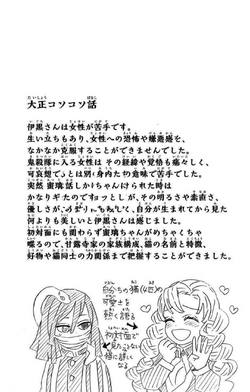 大正コソコソ話
伊黒さんは女性が苦手です。
生い立ちもあり、女性への恐怖や嫌悪感を、
なかなか克服することができませんでした。
鬼殺隊に入る女性は その経緯や覚悟も痛々しく、
可哀想で
別の意味で苦手でした。
突然 蜜璃
しかけられた時は
かなりギ
としが、その明るさや素直さ、
優しさが、
自分が生まれてから見た
何よりも美しいと伊黒さんは感じました。
初対面にも関わらず蜜璃ちゃんがめちゃくちゃ
喋るので、甘露寺家の家族構成、猫の名前と特徴、
好物や猫同士の力関係まで把握することができました。
自分ちの猫(4匹)の
可愛さを
熱く語る
初対面で
見たことない
猫に詳しくなる